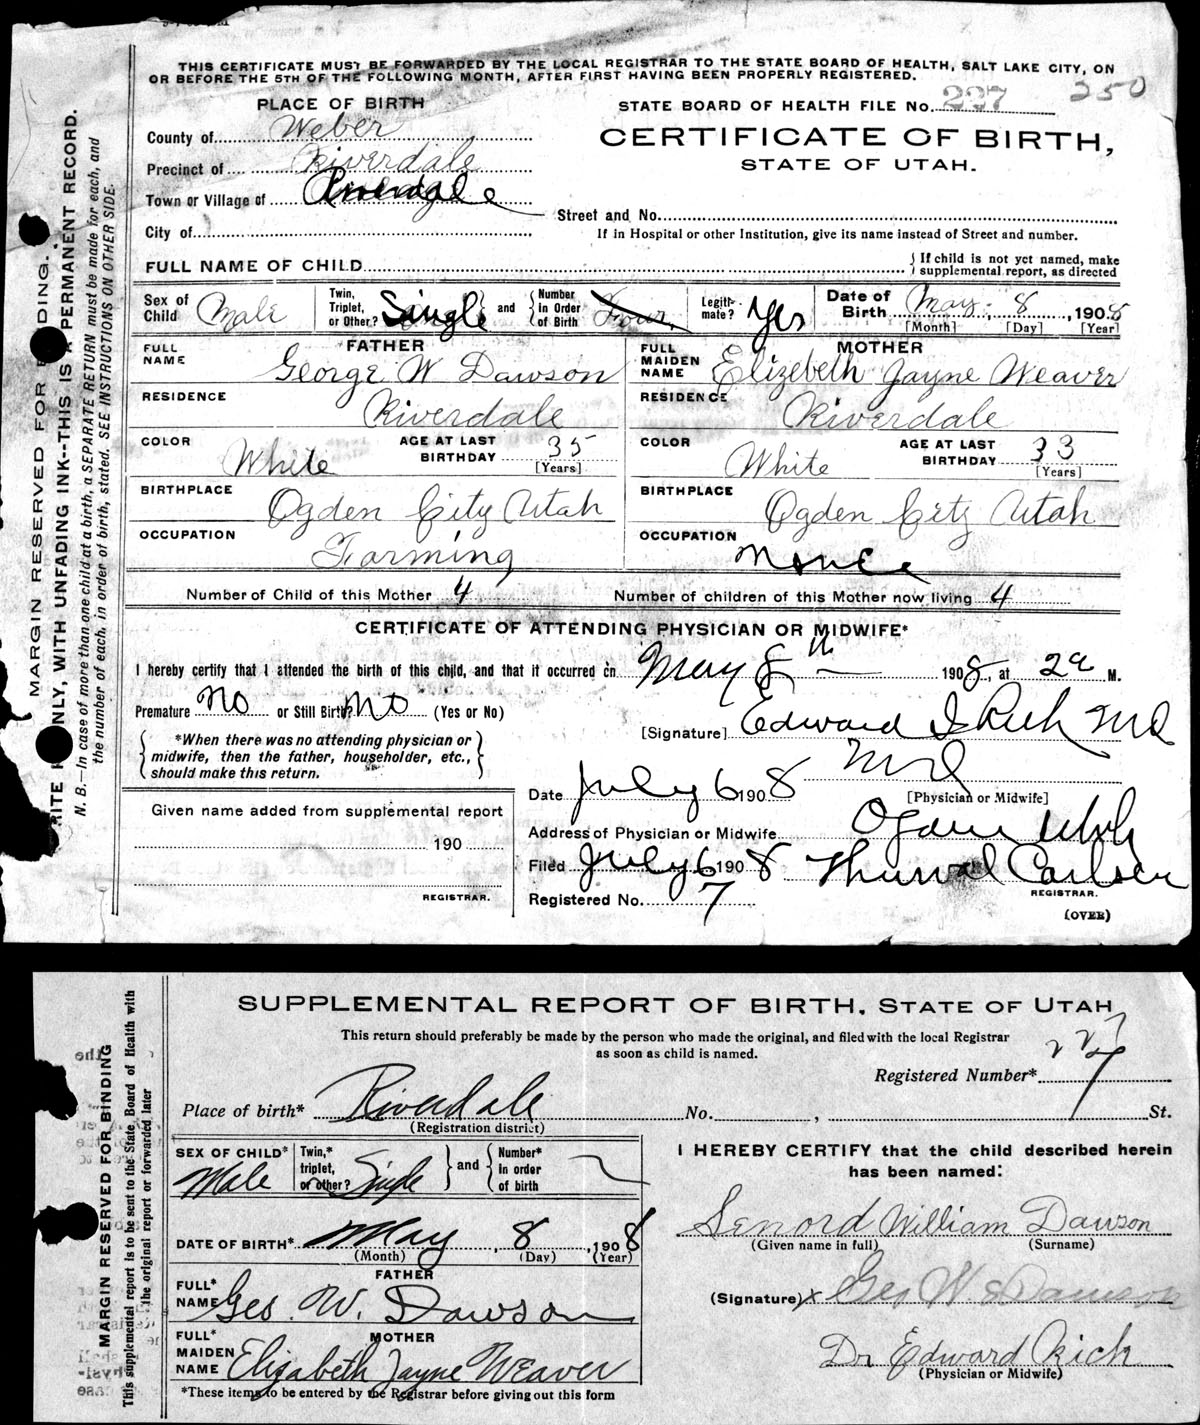 THIS CERTIFICATE MUST BE FORWARDED BY THE LOCAL REGISTRAR TO THE STATE BOARD OF HEALTH, SALT LAKE CITY, ON
OR BEFORE THE 5TH OF THE FOLLOWING MONTH, AFTER FIRST HAVING BEEN PROPERLY REGISTERED.
PLACE OF BIRTH
STATE BOARD OF HEALTH FILE No. 227 250
County of Weber
CERTIFICATE OF BIRTH,
STATE OF UTAH.
Precinct of Riverdale
Town or Village of Riverdale
Street and No.
City of
If in Hospital or other Institution, give its name instead of Street and number.
FULL NAME OF CHILD
If child is not yet named, make
supplemental report, as directed
Sex of Child Male
Twin, Triplet, or Other? Single and Number in Order of Birth Four
Legitimate? Yes
Date of Birth May 8 1908
[Month] [Day] [Year]
FATHER
FULL NAME George W Dawson
MOTHER
FULL MAIDEN NAME Elizebeth Jayne Weaver
RESIDENCE Riverdale
RESIDENCE Riverdale
COLOR White AGE AT LAST BIRTHDAY 35 [Years]
COLOR White AGE AT LAST BIRTHDAY 33 [Years]
BIRTHPLACE Ogden City Utah
BIRTHPLACE Ogden City Utah
OCCUPATION Farming
OCCUPATION
Number of Child of this Mother 4 Number of children of this Mother now living 4
CERTIFICATE OF ATTENDING PHYSICIAN OR MIDWIFE*
I hereby certify that I attended the birth of this child, and that it occurred on May 8th 1908, at 2a M.
Premature No or Still Birth? No (Yes or No)
[Signature] Edward I Rich MD
*When there was no attending physician or
midwife, then the father, householder, etc.,
should make this return.
MD
[Physician or Midwife]
Date July 6 1908
Given name added from supplemental report
190
REGISTRAR.
Address of Physician or Midwife Ogden Utah
Filed July 6 1908 Carlsen
REGISTRAR.
Registered No. 7
(OVER)
MARGIN RESERVED FOR BINDING.
WRITE ONLY, WITH UNFADING INK--THIS IS A PERMANENT RECORD.
N. B.—In case of more than one child at a birth, a SEPARATE RETURN must be made for each, and
the number of each, in order of birth, stated. SEE INSTRUCTIONS ON OTHER SIDE.
SUPPLEMENTAL REPORT OF BIRTH, STATE OF UTAH
This return should preferably be made by the person who made the original, and filed with the local Registrar
as soon as child is named.
227
Registered Number* 7
Place of birth* Riverdale No. , St.
(Registration district)
SEX OF CHILD* Male
Twin,* triplet, or other? Single and Number* in order of birth
I HEREBY CERTIFY that the child described herein
has been named:
Senord William Dawson
(Given name in full) (Surname)
DATE OF BIRTH* May, 8, 1908
(Month) (Day) (Year)
FATHER
FULL* NAME Geo. W. Dawson
(Signature) x Geo W Dawson
MOTHER
FULL* MAIDEN NAME Elizabeth Jayne Weaver
Dr Edward Rich
(Physician or Midwife)
*These items to be entered by the Registrar before giving out this form
MARGIN RESERVED FOR BINDING
This supplemental report is to be sent to the State Board of Health with
the original report or forwarded later